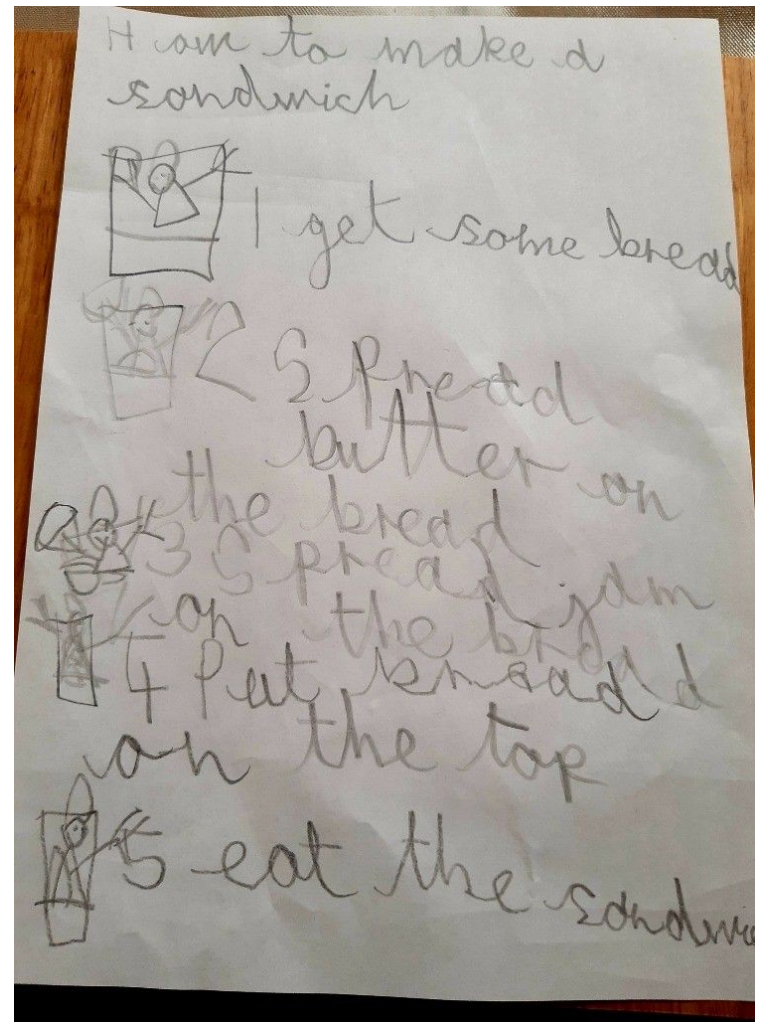 How to make a
sandwich
1 get some bread
2 Spread
butter on
the bread
3 Spread jam
on the bread
4 Put bread
on the top
5 eat the sandwi